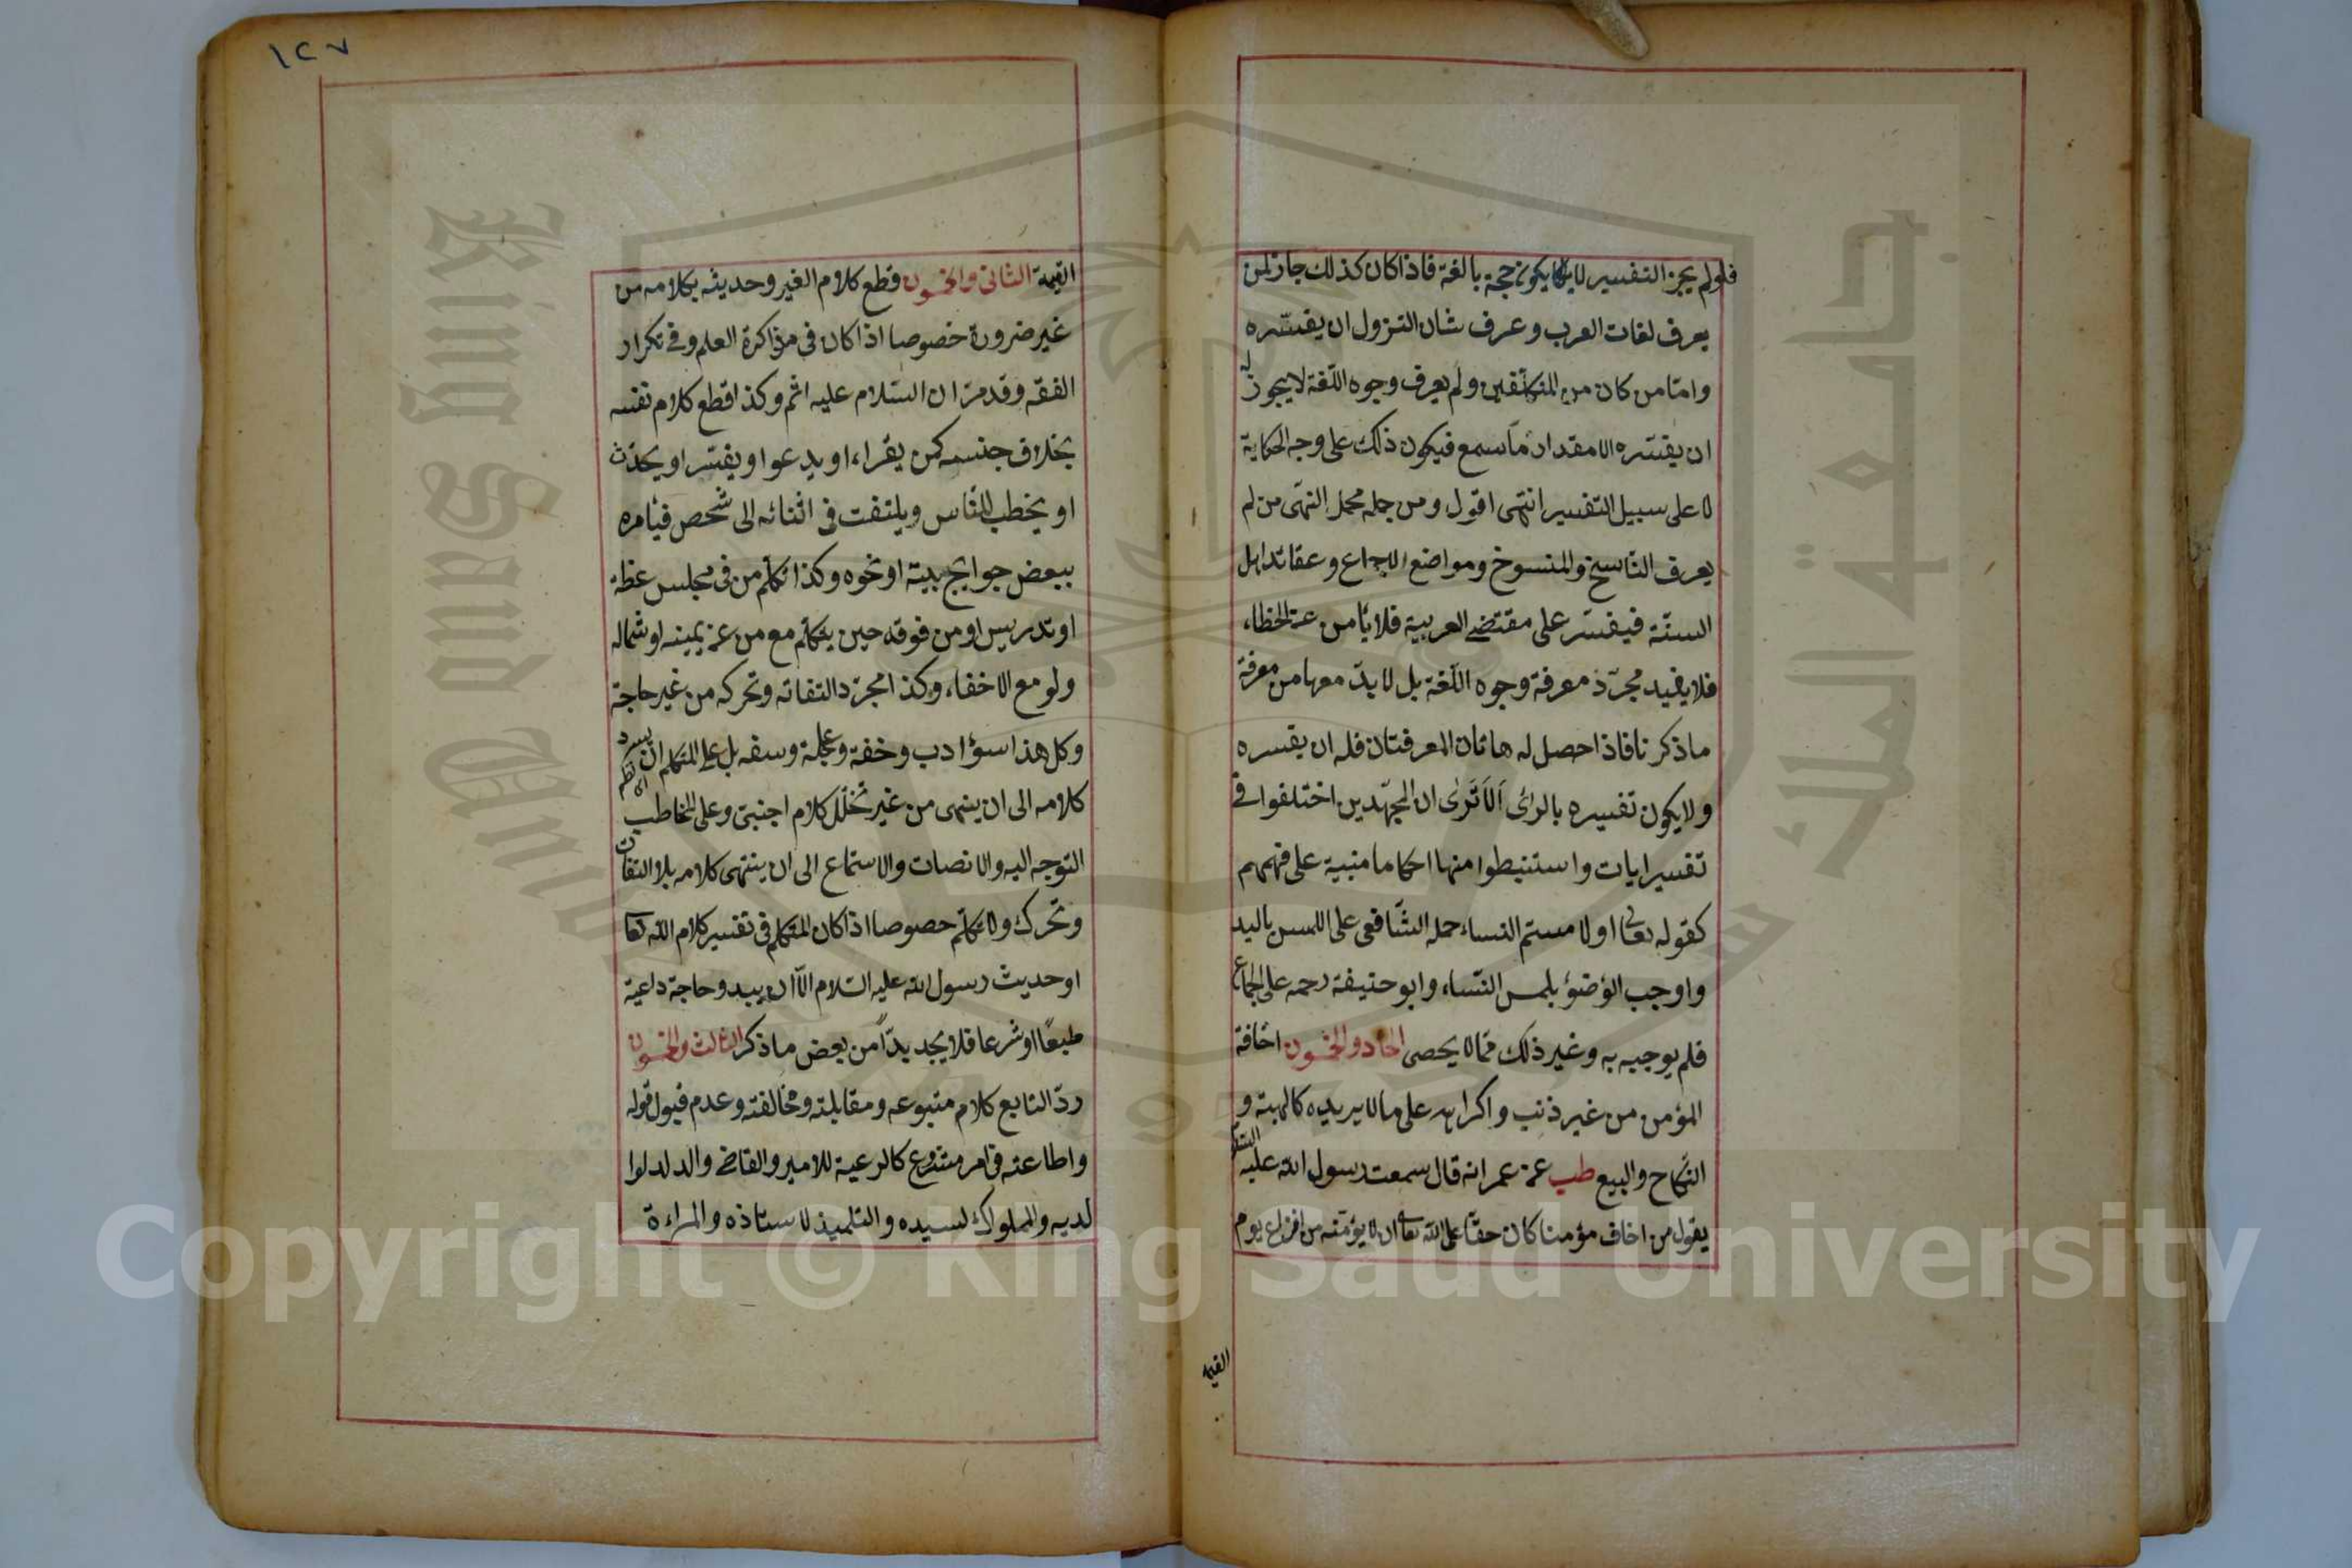 فلو لم يجز التفسير لا يكون حجة بالغة فاذا كان كذلك جاز لمن
يعرف لغات العرب وعرف شان التزول ان يفسّره
وامّا من كان من المتكلّفين ولم يعرف وجوه اللّغة لا يجوز له
ان يفسّره الا مقدار ما سمع فيكون ذلك على وجه الحكاية
لا على سبيل التفسير انتهى اقول ومن جمله محمل النهّى من لم
يعرف النّاسخ والمنسوخ ومواضع الاجماع وعقائد اهل
السنّة فيفسّر على مقتضى العربية فلا يأمن عن الخطاء
فلا يفيد مجرّد معرفة وجوه اللّغة بل لا بدّ معها من معرفة
ما ذكرنا فاذا حصل له هاتان المعرفتان فله ان يفسره
ولا يكون تفسيره بالرائ اَلاَ تَرٰى ان المجتهّدين اختلفوا فى
تفسير ايات واستنبطوا منها احكاما مبنية على فهمهم
كقوله تعالى او لامستم النساء حمله الشّافعى على اللمس باليد
واوجب الوضوء بلمس النّساء وابو حنيفة رحمه على الجماع
فلم يوجبه به وغير ذلك ممّا لا يحصى الحاد والخمسون اخافة
المؤمن من غير ذنب واكراهه على ما لا يريده كالهبة و
النّكاح والبيع طب عن عمر انه قال سمعت رسول الله عليه السّلام
يقول من اخاف مؤمنا كان حقّا على الله تعالى ان لا يؤمّنه من افزاع يوم
القيمة
١٢٧
القيمة الثانى والخمسون قطع كلام الغير وحديثه بكلامه من
غير ضرورة خصوصا اذا كان فى مذاكرة العلم وفى تكرار
الفقه وقد مرّ ان السّلام عليه اثم وكذا قطع كلام نفسه
بخلاف جنسه كمن يقراء او يدعوا ويفسّر او يحدّث
او يخطب للنّاس ويلتفت فى اثنائه الى شخص فيأمره
ببعض حوايج بيته او نحوه وكذا تكلّم من فى مجلس عظة
او تدريس او من فوقه حين يتكلّم مع من عن يمينه او شماله
ولو مع الاخفاء وكذا مجرّد التفاته وتحركه من غير حاجة
وكل هذا سؤادب وخفة وعجلة وسفه بل على المتكلم ان يسرد
كلامه الى ان ينهى من غير تخلّل كلام اجنبى وعلى المخاطب
التوجه اليه والانصات والاستماع الى ان ينتهى كلامه بلا التفات
وتحرك ولا تكلّم خصوصا اذا كان المتكلم فى تفسير كلام الله تعالى
او حديث رسول الله عليه السّلام الاّ ان يبدو حاجة داعية
طبعًا او شرعا فلا يجد بدّا من بعض ما ذكر الثالث والخمسون
ردّ التابع كلام متبوعه ومقابلته ومخالفته وعدم قبول قوله
واطاعته فى امر مشروع كالرعية للامير والقاضى والولد لوا
لديه والمملوك لسيده والتلميذ لاستاذه والمراءة
جامعة الملك سعود
King Saud University
Copyright © King Saud University